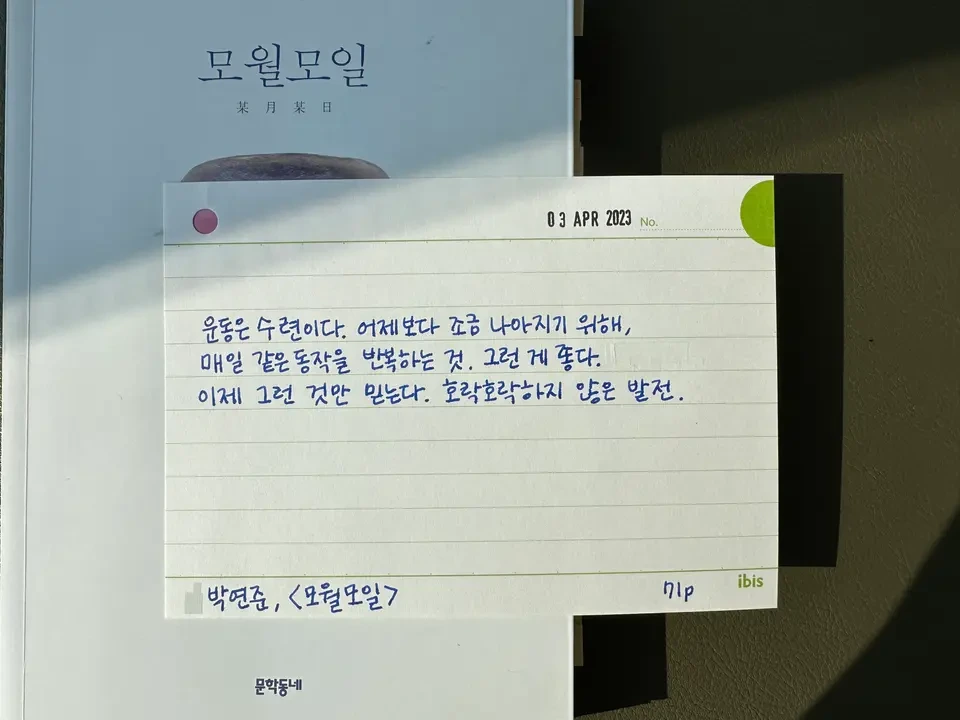 모월모일
某月某日
03 APR 2023 No.
운동은 수련이다. 어제보다 조금 나아지기 위해,
매일 같은 동작을 반복하는 것. 그런 게 좋다.
이제 그런 것만 믿는다. 호락호락하지 않은 발전.
박연준, <모월모일> 71p
ibis
문학동네